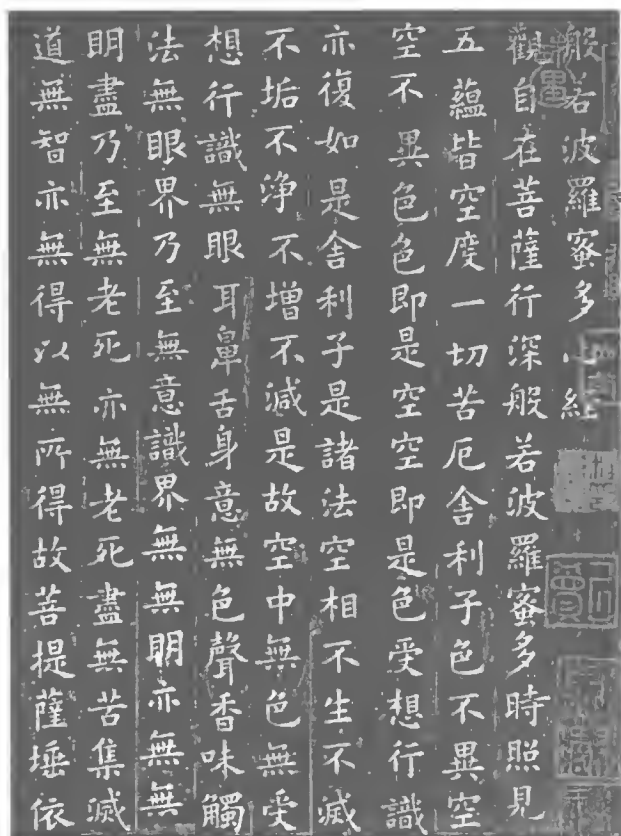 般若波羅蜜多心經
觀自在菩薩行深般若波羅蜜多時照見
五蘊皆空度一切苦厄舍利子色不異空
空不異色色即是空空即是色受想行識
亦復如是舍利子是諸法空相不生不滅
不垢不淨不增不減是故空中無色無受
想行識無眼耳鼻舌身意無色聲香味觸
法無眼界乃至無意識界無無明亦無無
明盡乃至無老死亦無老死盡無苦集滅
道無智亦無得以無所得故菩提薩埵依